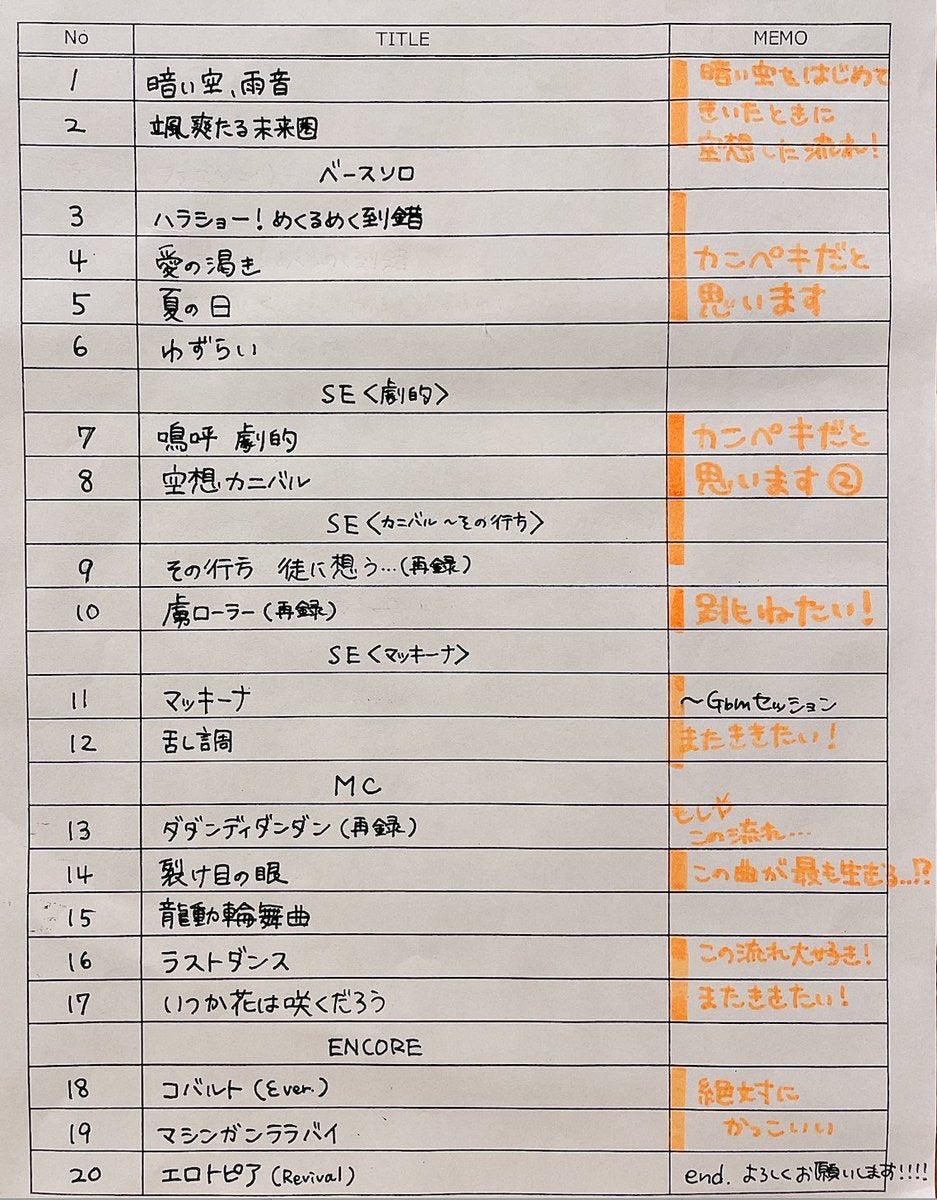 No TITLE MEMO
1 暗い空、雨音 暗い空をはじめて
2 颯爽たる未来圏 きいたときに
空想した流れ!
ベースソロ
3 ハラショー!めくるめく倒錯
4 愛の渇き カンペキだと
5 夏の日 思います
6 わずらい
SE〈劇的〉
7 嗚呼 劇的 カンペキだと
8 空想カニバル 思います②
SE〈カニバル〜その行方〉
9 その行方 徒に想う…(再録)
10 虜ローラー(再録) 跳ねたい!
SE〈マッキーナ〉
11 マッキーナ 〜Gbmセッション
12 乱調 またききたい!
MC
もしや
13 ダダンディダンダン(再録) この流れ…
14 裂け目の眼 この曲が最も生きる..!?
15 龍動輪舞曲
16 ラストダンス この流れ大好き!
17 いつか花は咲くだろう またききたい!
ENCORE
18 コバルト(Ever.) 絶対に
19 マシンガンララバイ かっこいい
20 エロトピア(Revival) end. よろしくお願いします!!!!